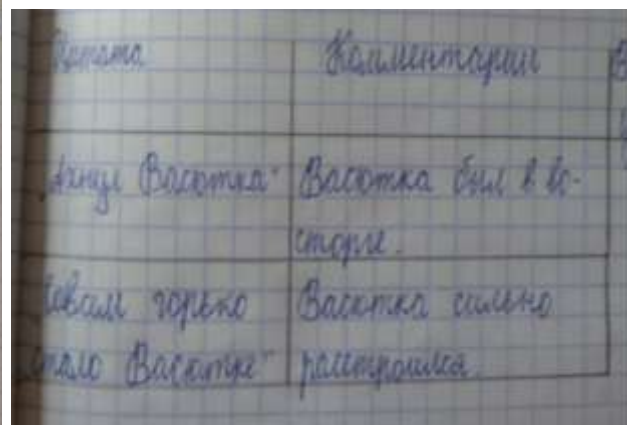 Цитата
Комментарии
В
„Ахнул Васютка“
Васютка был в во-
сторге.
Совсем горько
стало Васютке“
Васютка сильно
расстроился.